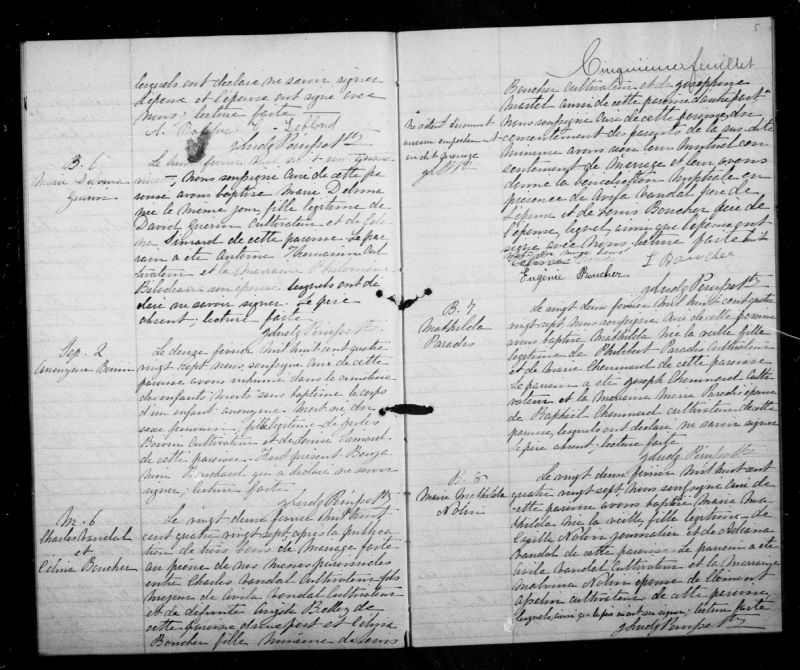 lesquels ont déclaré ne savoir signer
l'épouse et l'épouse ont signé avec
nous; lecture faite
Leblond
Ptre
B. 6
Marie Delvina
Guerin
Le février mil huit cent quatre
vingt-, nous soussigné curé de cette pa
roisse avons baptisé Marie Delvina
née le même jour, fille légitime de
David Guerin cultivateur et de
Simard de cette paroisse. Le par
rain a été Antoine cul
tivateur et la marraine Philomène
Bilodeau son épouse lesquels ont dé
claré ne savoir signer. Le père
absent; lecture faite
Ptre
Sep. 2
Anonyme Boivin
Le douze février mil huit cent quatre
vingt sept nous soussigné curé de cette
paroisse avons inhumé dans le cimetière
des enfants morts sans baptême le corps
d'un enfant anonyme mort-né du
sexe féminin fille légitime de Jules
Boivin cultivateur et de Louise
de cette paroisse. Etait présent Benja
min qui a déclaré ne savoir
signer; lecture faite
Ptre
M. 6
Charles Vandal
et
Célina Boucher
Le vingt deux février mil huit
cent quatre vingt sept, après la publica
tion de trois bans de mariage faite
au prône de nos messes paroissiales
entre Charles Vandal cultivateur fils
mineur de Avila Vandal cultivateur
et de défunte Angèle de
cette paroisse d'une part et Célina
Boucher fille mineure de Louis
5
Cinquième feuillet
Boucher cultivateur et de Joséphine
Martel aussi de cette paroisse d'autre part,
ne s'étant découvert
aucun empêchement
au dit mariage
nous soussigné curé de cette paroisse, du
consentement des parents de la susdite
mineure avons reçu leur mutuel con
sentement de mariage et leur avons
donné la bénédiction nuptiale en
présence de Vandal père de
l'époux et de Louis Boucher père de
l'épouse, lequel, ainsi que l'épouse ont
signé avec nous, lecture faite
L Boucher
Eugénie Boucher
Ptre
B. 7
Mathilda
Paradis
Le vingt deux février mil huit cent quatre
vingt sept, nous soussigné curé de cette paroisse
avons baptisé Mathilda née la veille fille
légitime de Philibert Paradis cultivateur
et de Marie Chouinard de cette paroisse
Le parrain a été Joseph Chouinard culti
vateur et la marraine Marie Paradis épouse
de Raphaël Chouinard cultivateur de cette
paroisse, lesquels ont déclaré ne savoir signer
le père absent; lecture faite
Ptre
B. 8
Marie Mathilda
Nolin
Le vingt deux février mil huit cent
quatre vingt sept, nous soussigné curé de
cette paroisse avons baptisé Marie Ma
thilda née la veille, fille légitime de
Cyrille Nolin journalier et de Adèlina
Vandal de cette paroisse. Le parrain a été
Avila Vandal cultivateur et la marraine
Malvina Nolin épouse de Clément
Asselin cultivateur de cette paroisse,
lesquels, ainsi que le père n'ont su signer; lecture faite
Ptre